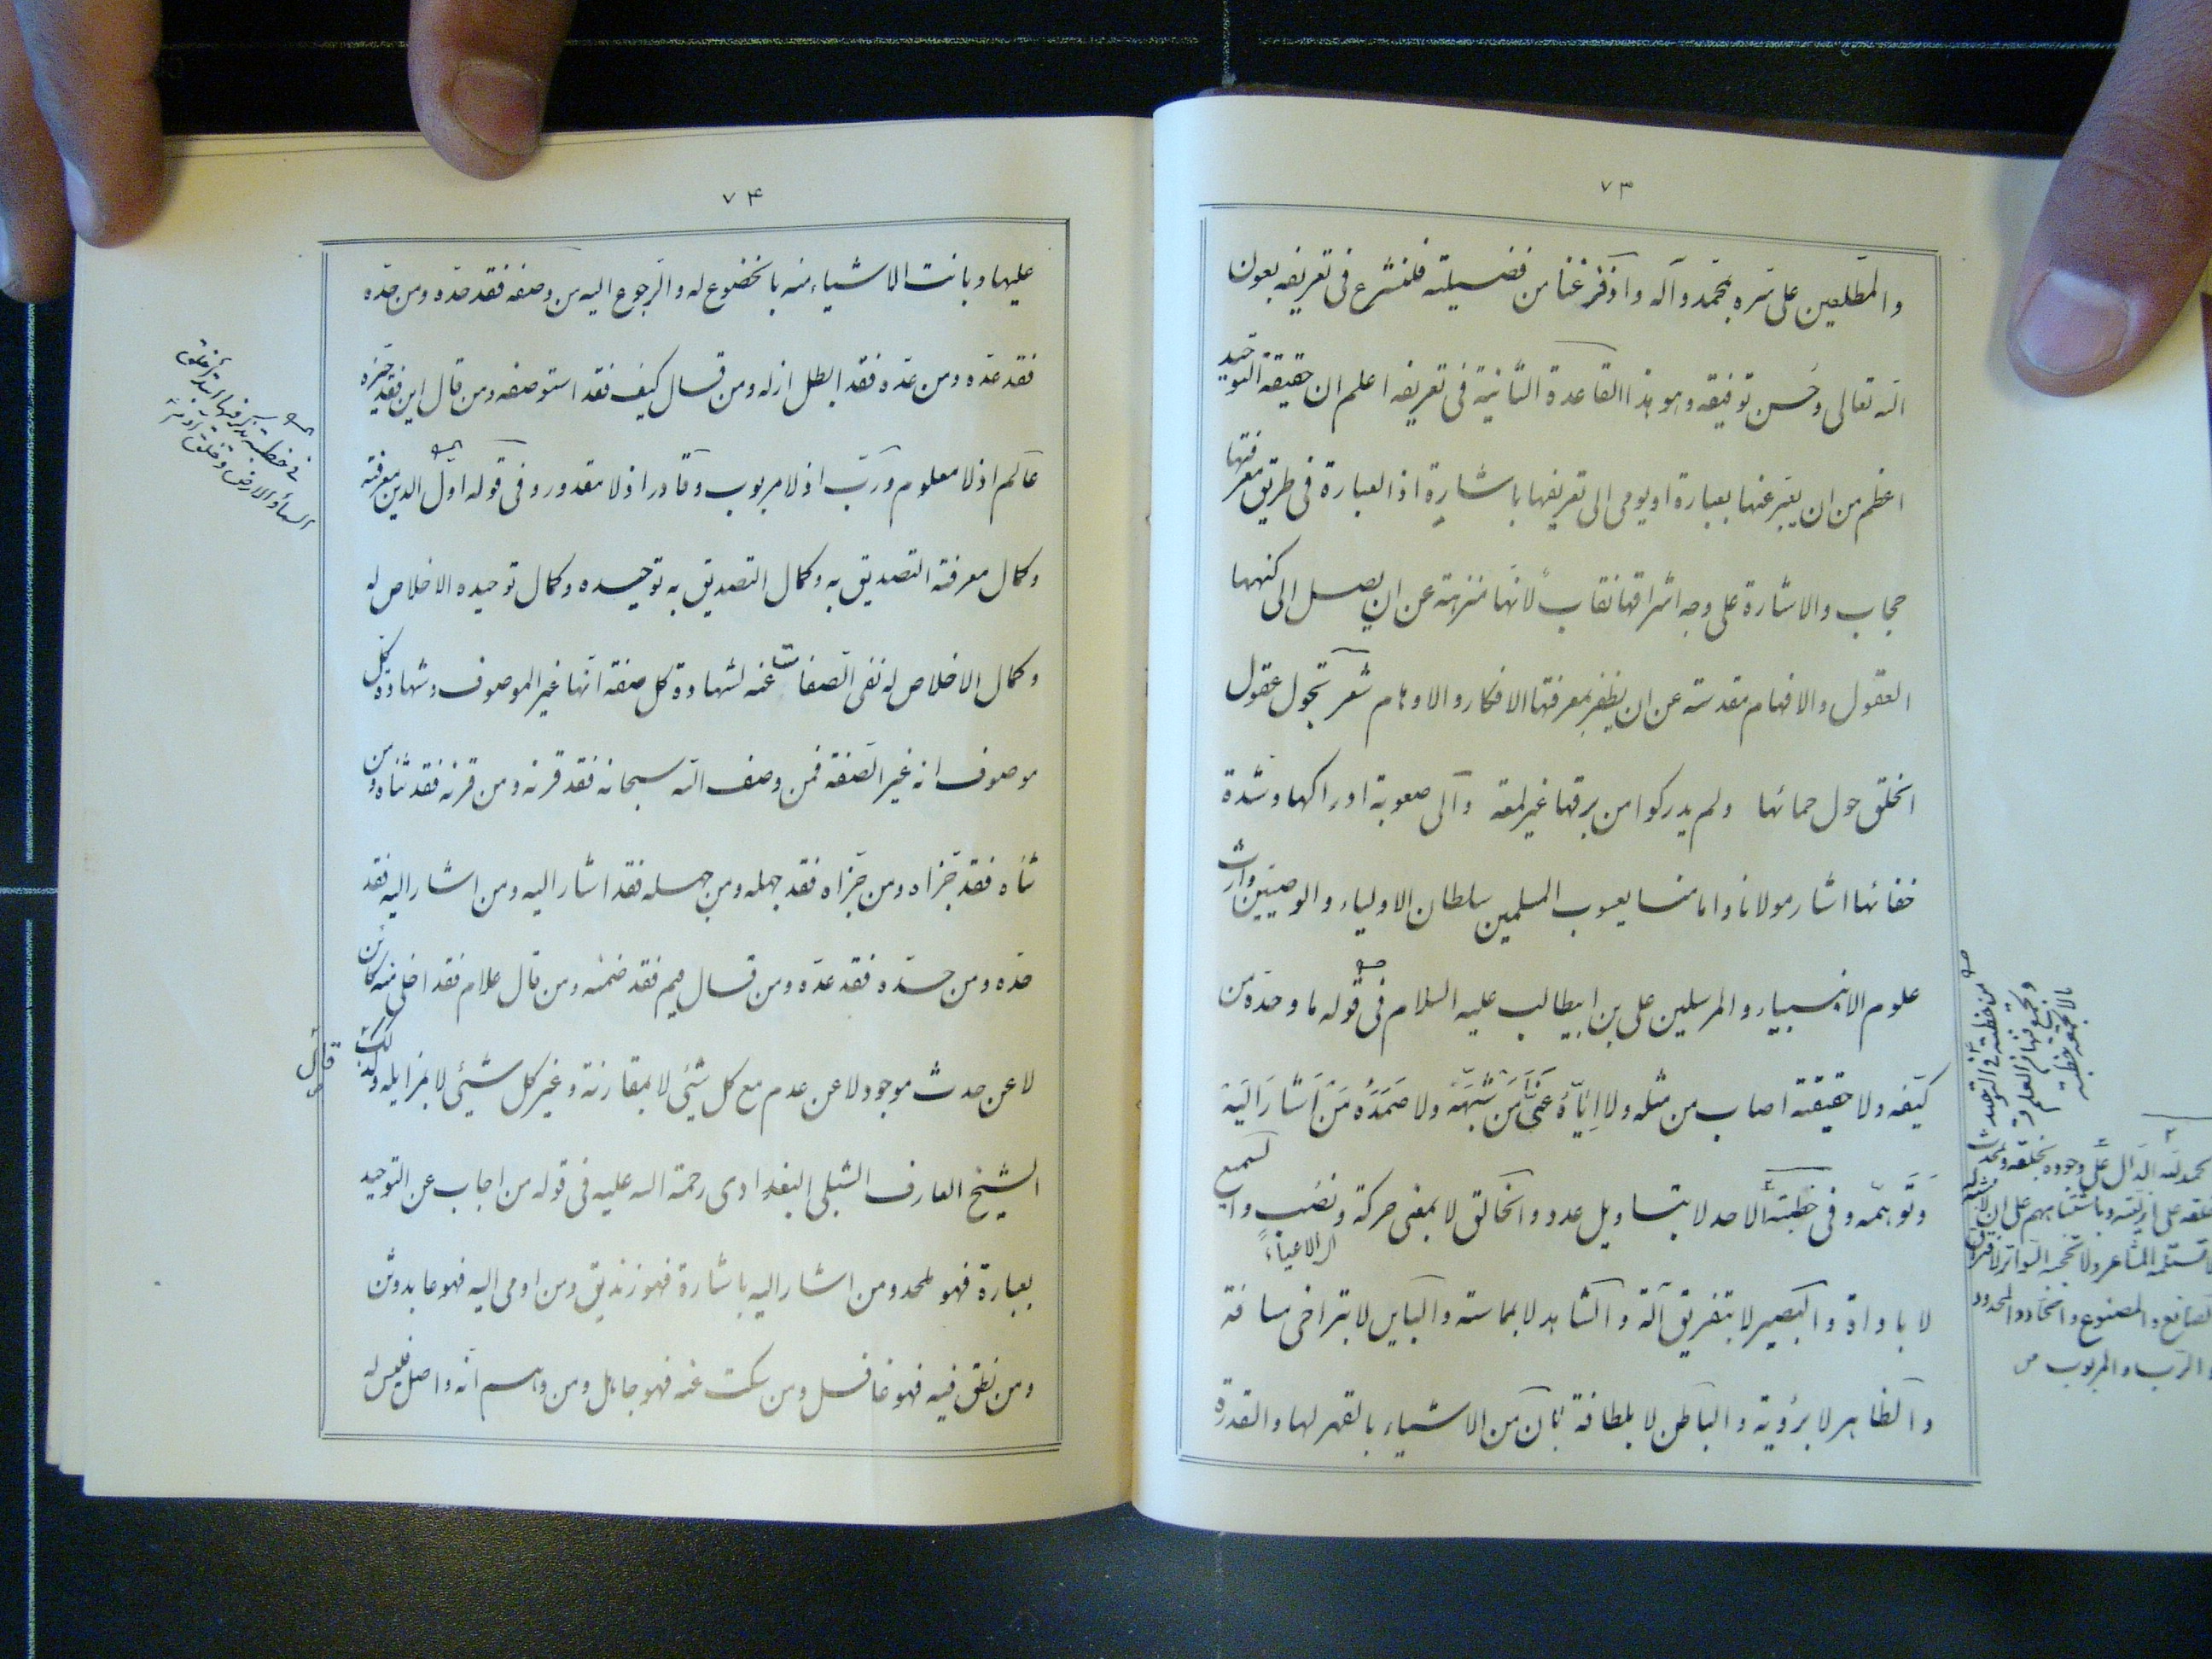 ۷۳
والمطلعین علی سره بمحمد وآله واذ فرغنا من فضیلته فلنشرع فی تعریفه بعون
الله تعالی وحُسن توفیقه وهو هذا القاعدة الثانیة فی تعریفه اعلم ان حقیقة التوحید
اعظم من ان یعبّر عنها بعبارة او یومی الی تعریفها باشارة اذ العبارة فی طریق معرفتها
حجاب والاشارة علی وجه اشراقها نقاب لانّها منزهة عن ان یصل الی کنهها
العقول والافهام مقدسة عن ان یظفر بمعرفتها الافکار والاوهام شعر تجول عقول
الخلق حول حمائها ولم یدرکوا من برقها غیر لمعة والی صعوبة ادراکها وشدّة
خفائها اشار مولانا وامامنا یعسوب المسلمین سلطان الاولیاء والوصیین وارث
علوم الانبیاء والمرسلین علی بن ابیطالب علیه السلام فی قوله ما وحده من
کیّفه ولا حقیقته اصاب من مثله ولا اِیّاهُ عَنَی مَنْ شَبَّهَهُ ولا صَمَدَهُ مَنْ اَشارَ اِلَیْهِ
وَتَوَهَّمَه وفی خطبته الاحد لا بتاویل عدد والخالق لا بمعنی حرکة ونصَب والسمیع
لا باداة والبصیر لا بتفریق آلة والشاهد لا بمماسته والباین لا بتراخی مسافة
والظاهر لا برؤیة والباطن لا بلطافة بان من الاشیاء بالقهر لها والقدرة
من خطبته فی التوحید
وتجمع فیها من العلوم
ما لا تجمعه خطبة
الحمد لله الدّال علی وجوده بخلقه وبمحدث
خلقه علی ازلیته وباشتباههم علی ان لا شبه له
لا تستلمه المشاعر ولا تحجبه السواتر لافتراق
الصانع والمصنوع والحادّ والمحدود
والرّب والمربوب
۷۴
علیها وبانت الاشیاء منه بالخضوع له والرّجوع الیه من وصفه فقد حدّه ومن حدّه
فقد عدّه ومن عدّه فقد ابطل ازله ومن قال کیف فقد استوصفه ومن قال این فقد حیّزه
عالم اذ لا معلوم ورَبّ اذ لا مربوب وقادر اذ لا مقدور وفی قوله اوّل الدین معرفته
وکمال معرفته التصدیق به وکمال التصدیق به توحیده وکمال توحیده الاخلاص له
وکمال الاخلاص له نفی الصّفات عنه لشهادة کل صفة انّها غیر الموصوف وشهادة کلّ
موصوف انه غیر الصّفة فمن وصف الله سبحانه فقد قرنه ومن قرنه فقد ثناه ومن
ثناه فقد جزّاه ومن جزّاه فقد جهله ومن جهله فقد اشار الیه ومن اشار الیه فقد
حدّه ومن حدّه فقد عدّه ومن قال فیم فقد ضمنه ومن قال علام فقد اخلی منه کائن
لا عن حدث موجود لا عن عدم مع کل شیٔ لا بمقارنة وغیر کل شیٔ لا بمزایله ولذلک قال
الشیخ العارف الشبلی البغدادی رحمة الله علیه فی قوله من اجاب عن التوحید
بعبارة فهو ملحد ومن اشار الیه باشارة فهو زندیق ومن اومی الیه فهو عابد وثن
ومن نطق فیه فهو غافل ومن سکت عنه فهو جاهل ومن واهم انّه واصل فلیس له
فی خطبته یذکر فیها ابتدأ خلق
السمأ والارض وخلق آدم